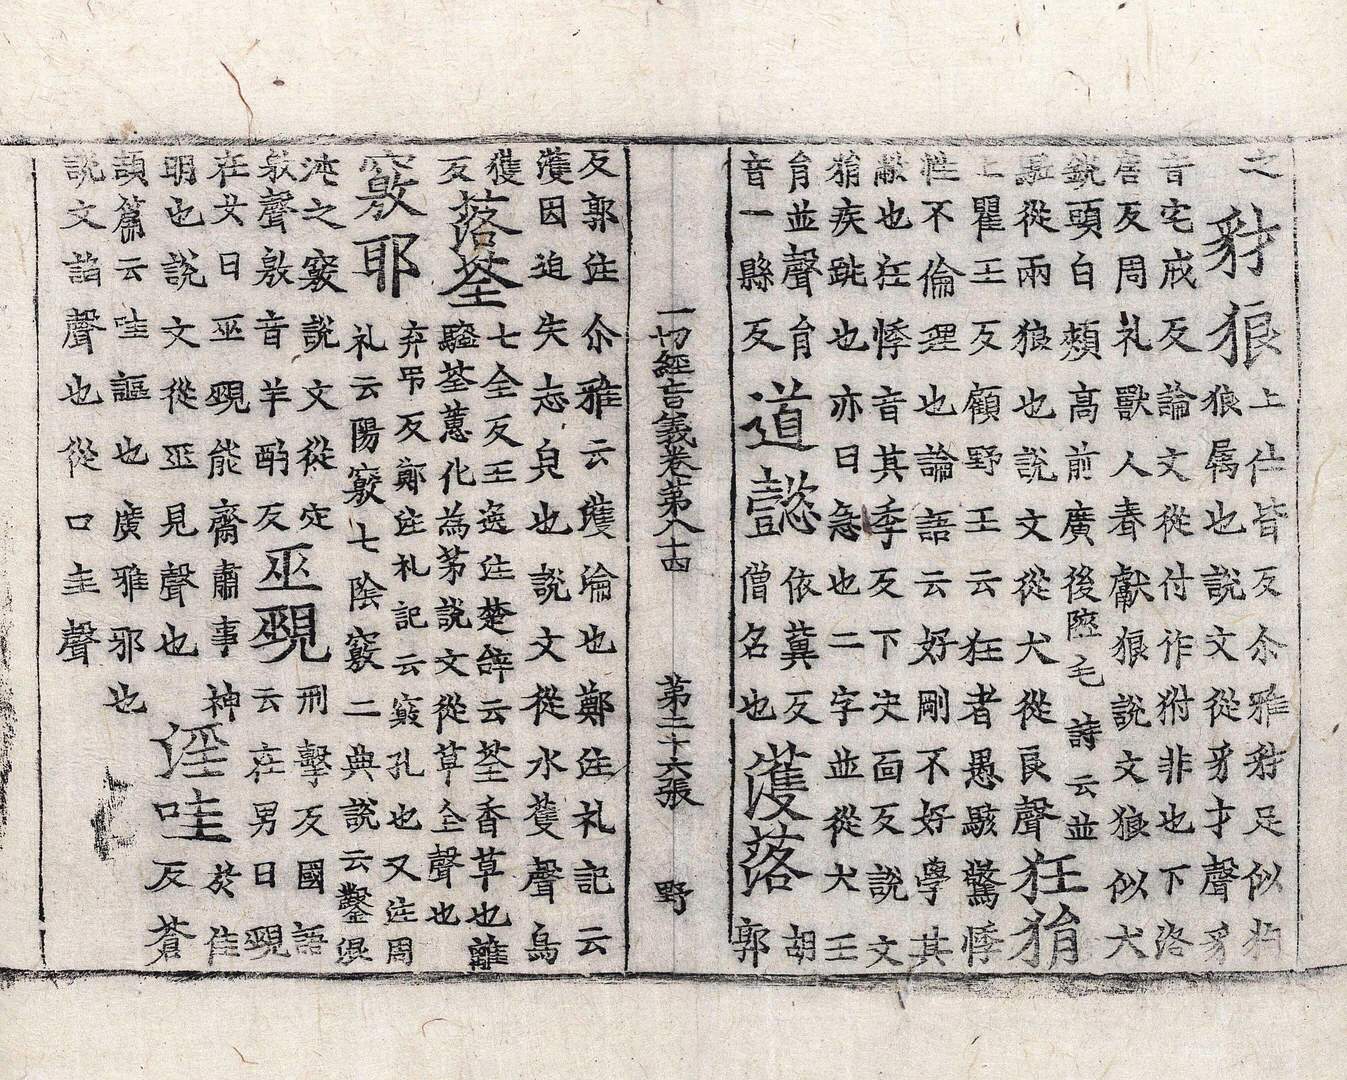 之
豺狼
上仕皆反尒雅豺足似狗
狼屬也說文從豸才聲豸
音宅戒反論文從付作犲非也下洛
唐反周礼獸人春獻狼說文狼似犬
銳頭白頰高前廣後毛詩云並
驅從兩狼也說文從犬從良聲
狂狷
上瞿王反顧野王云狂者愚騃驚悸
性不倫理也論語云好剛不好學其
蔽也狂悸音其季反下决面反說文
狷疾跳也亦曰急也二字並從犬王
肙並聲肙
音一縣反
道懿
依冀反
僧名也
濩落
胡
郭
一切經音義卷第八十四 第二十六張 野
反郭注尒雅云濩淪也鄭注礼記云
濩因迫失志皃也說文從水蒦聲烏
獲
反
落荃
七全反王逸注楚辭云荃香草也離
騷荃蕙化為茅說文從草全聲也
竅耶
弃弔反鄭注礼記云竅孔也又注周
礼云陽竅七陰竅二典說云鑿混
沌之竅說文從穴
敫聲敫音羊酌反
巫覡
刑擊反國語
云在男曰覡
在女曰巫覡能齋肅事神
明也說文從巫見聲也
淫哇
於佳
反蒼
頡篇云哇謳也廣雅邪也
說文諂聲也從口圭聲